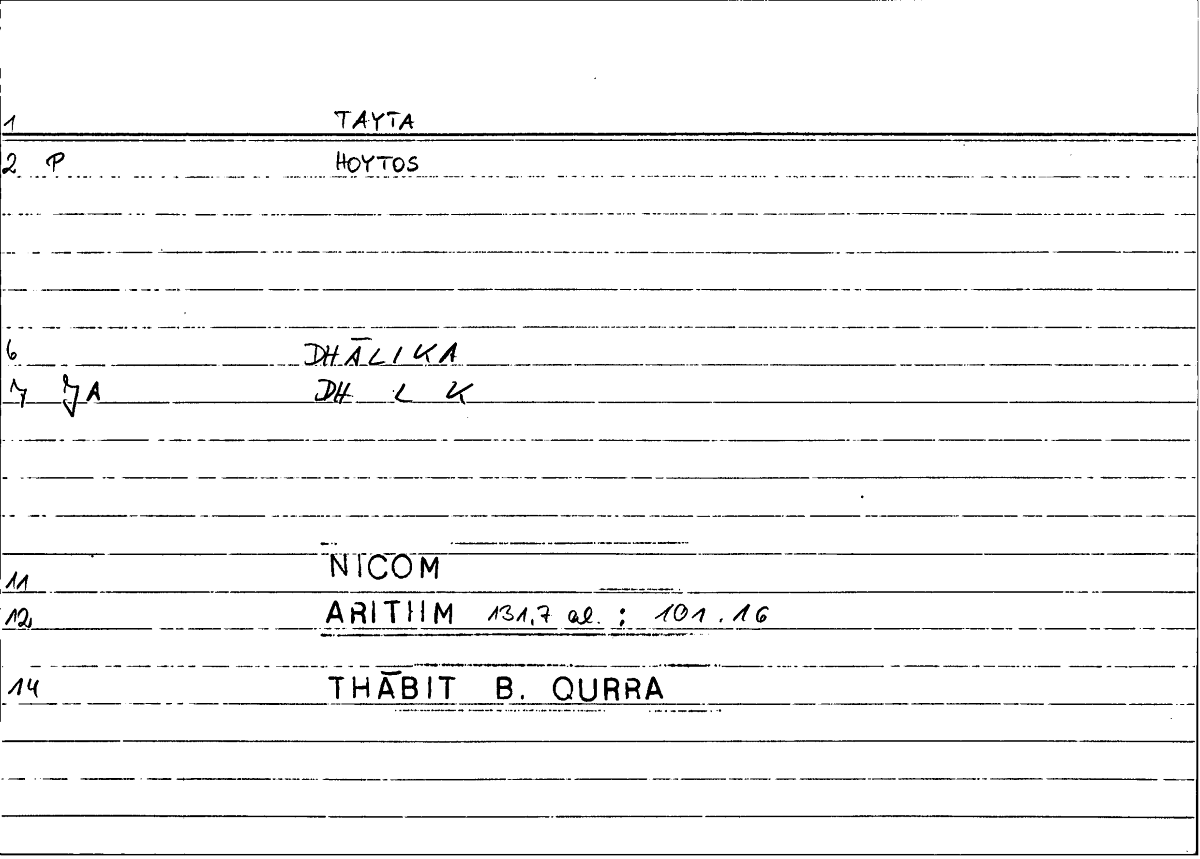 1 TAYTA
2 P HOYTOS
6 DHĀLIKA
7 JA DH L K
11 NICOM
12 ARITHM 131,7 al. ; 101.16
14 THĀBIT B. QURRA